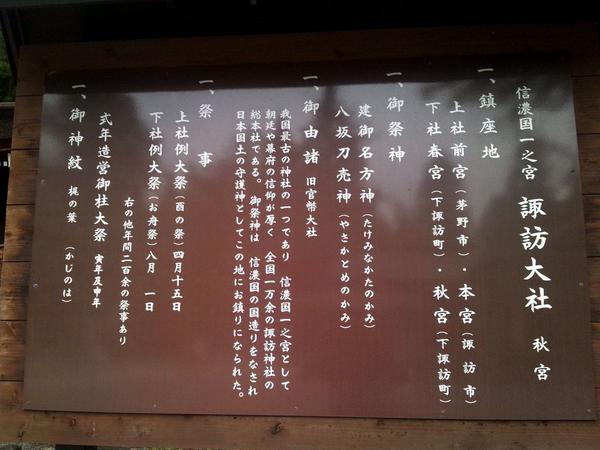 信濃国一之宮 諏訪大社 秋宮
一、鎮座地
上社前宮（茅野市）・本宮（諏訪市）
下社春宮（下諏訪町）・秋宮（下諏訪町）
一、御祭神
建御名方神（たけみなかたのかみ）
八坂刀売神（やさかとめのかみ）
一、御由諸 旧官幣大社
我国最古の神社の一つであり 信濃国一之宮として
朝廷や幕府の信仰が厚く 全国一万余の諏訪神社の
総本社である。 御祭神は 信濃国の国造りをなされ
日本国土の守護神としてこの地にお鎮りになられた。
一、祭事
上社例大祭（酉の祭）四月十五日
下社例大祭（お舟祭）八月 一日
右の他年間二百余の祭事あり
式年造営御柱大祭 寅年及申年
一、御神紋 梶の葉 （かじのは）